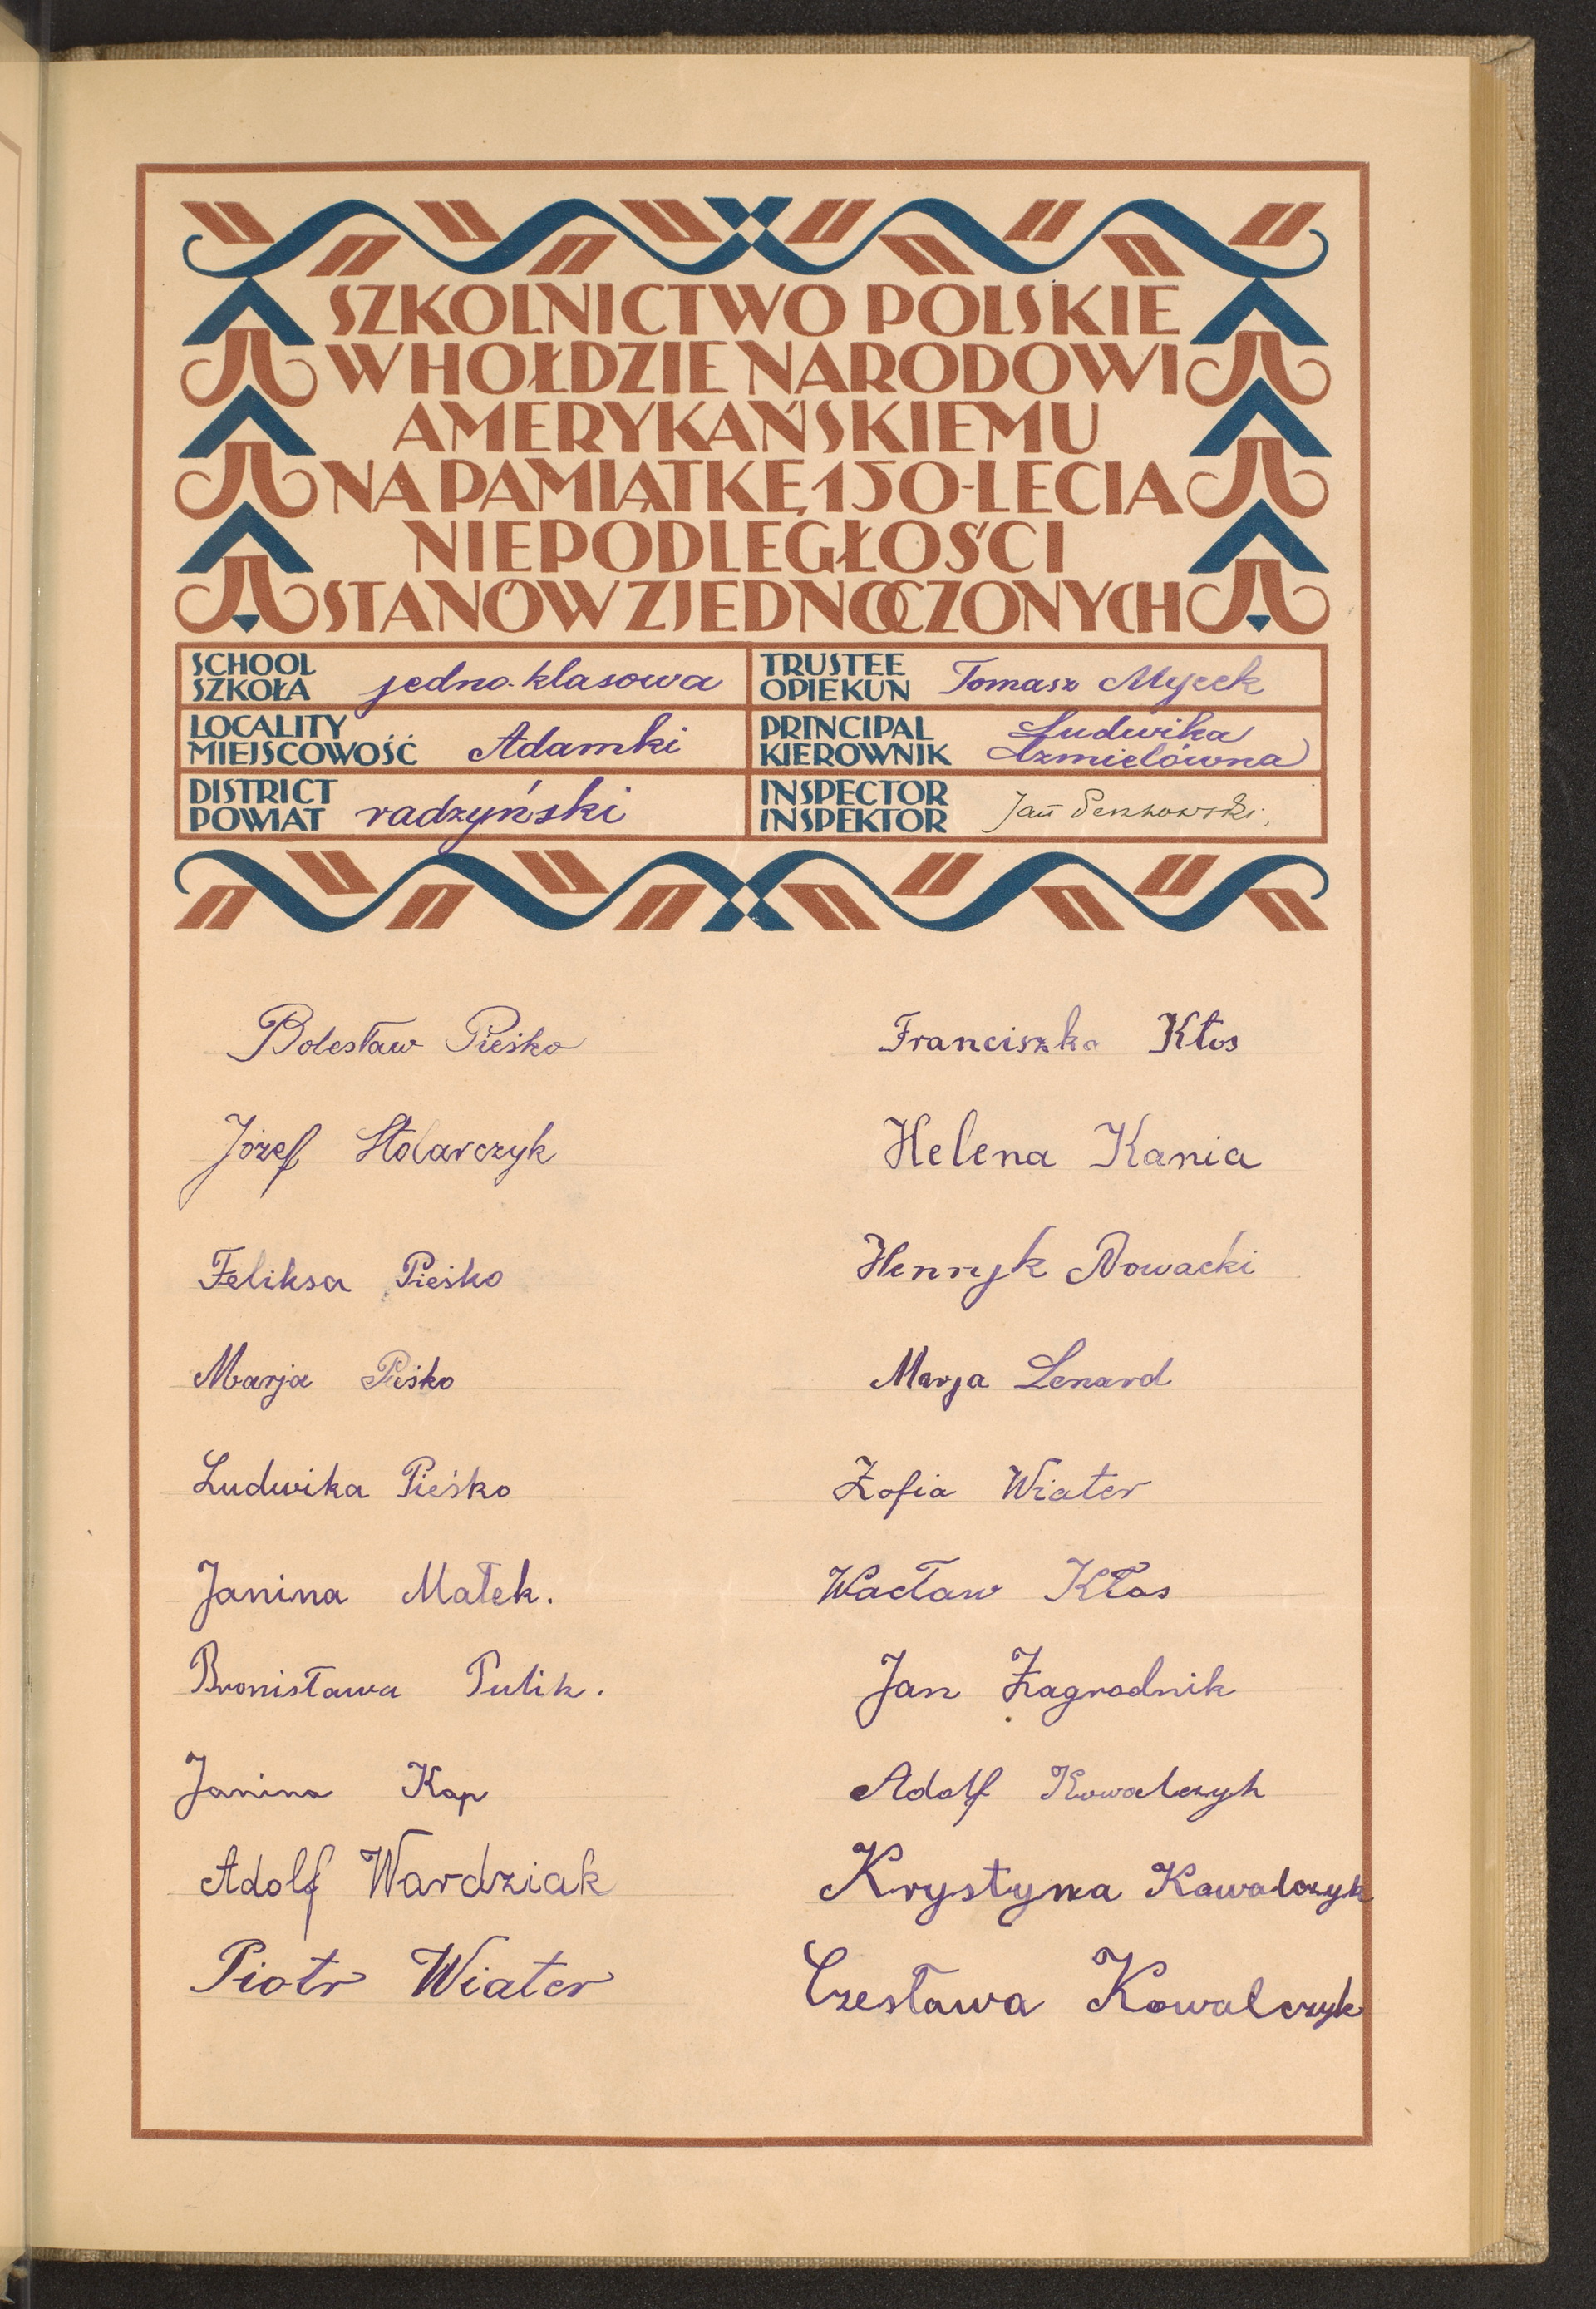 SZKOLNICTWO POLSKIE
W HOŁDZIE NARODOWI
AMERYKAŃSKIEMU
NA PAMIĄTKĘ 150-LECIA
NIEPODLEGŁOŚCI
STANÓW ZJEDNOCZONYCH
SCHOOL
SZKOŁA jedno-klasowa
TRUSTEE
OPIEKUN Tomasz
LOCALITY
MIEJSCOWOŚĆ Adamki
PRINCIPAL Ludwika
KIEROWNIK
DISTRICT
POWIAT radzyński
INSPECTOR
INSPEKTOR Jan
Bolesław Pieśko
Józef Stolarczyk
Feliksa Pieśko
Marja Pieśko
Ludwika Pieśko
Janina Małek.
Bronisława Pulik.
Janina Kap
Adolf Wardziak
Piotr Wiater
Franciszka Kłos
Helena Kania
Henryk Nowacki
Marja Lenard
Zofia Wiater
Wacław Kłos
Jan Zagrodnik
Adolf Kowalczyk
Krystyna Kowalczyk
Czesława Kowalczyk